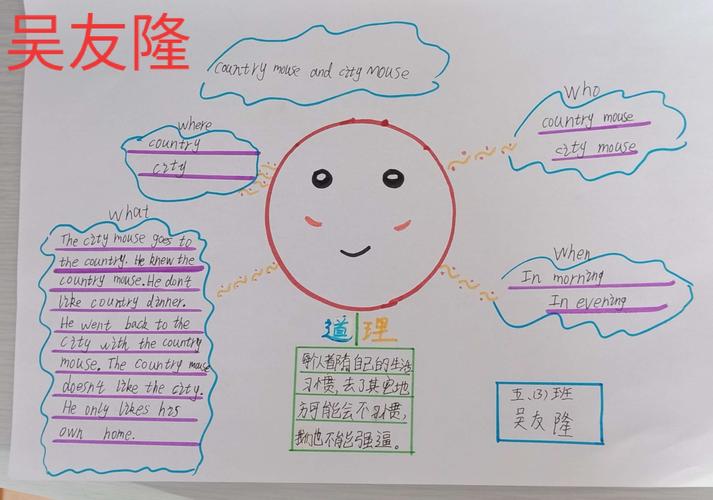 吴友隆
country mouse and city mouse
Who
country mouse
city mouse
where
country
city
what
The city mouse goes to
the country. He knew the
country mouse. He don't
like country dinner.
He went back to the
city with the country
mouse. The country mouse
doesn't like the city.
He only likes his
own home.
When
In morning
In evening
道理
每个人都有自己的生活
习惯,去了其它地
方可能会不习惯,
我们也不能强逼。
五、(3)班
吴友隆